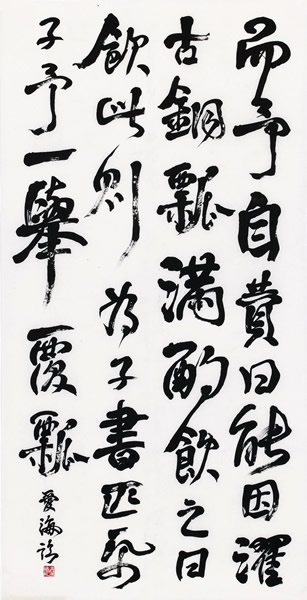 而予自費曰能因濯
古銅瓢滿酌飲之曰
飲此則為子書匹
子予一舉一覆瓢
愛海